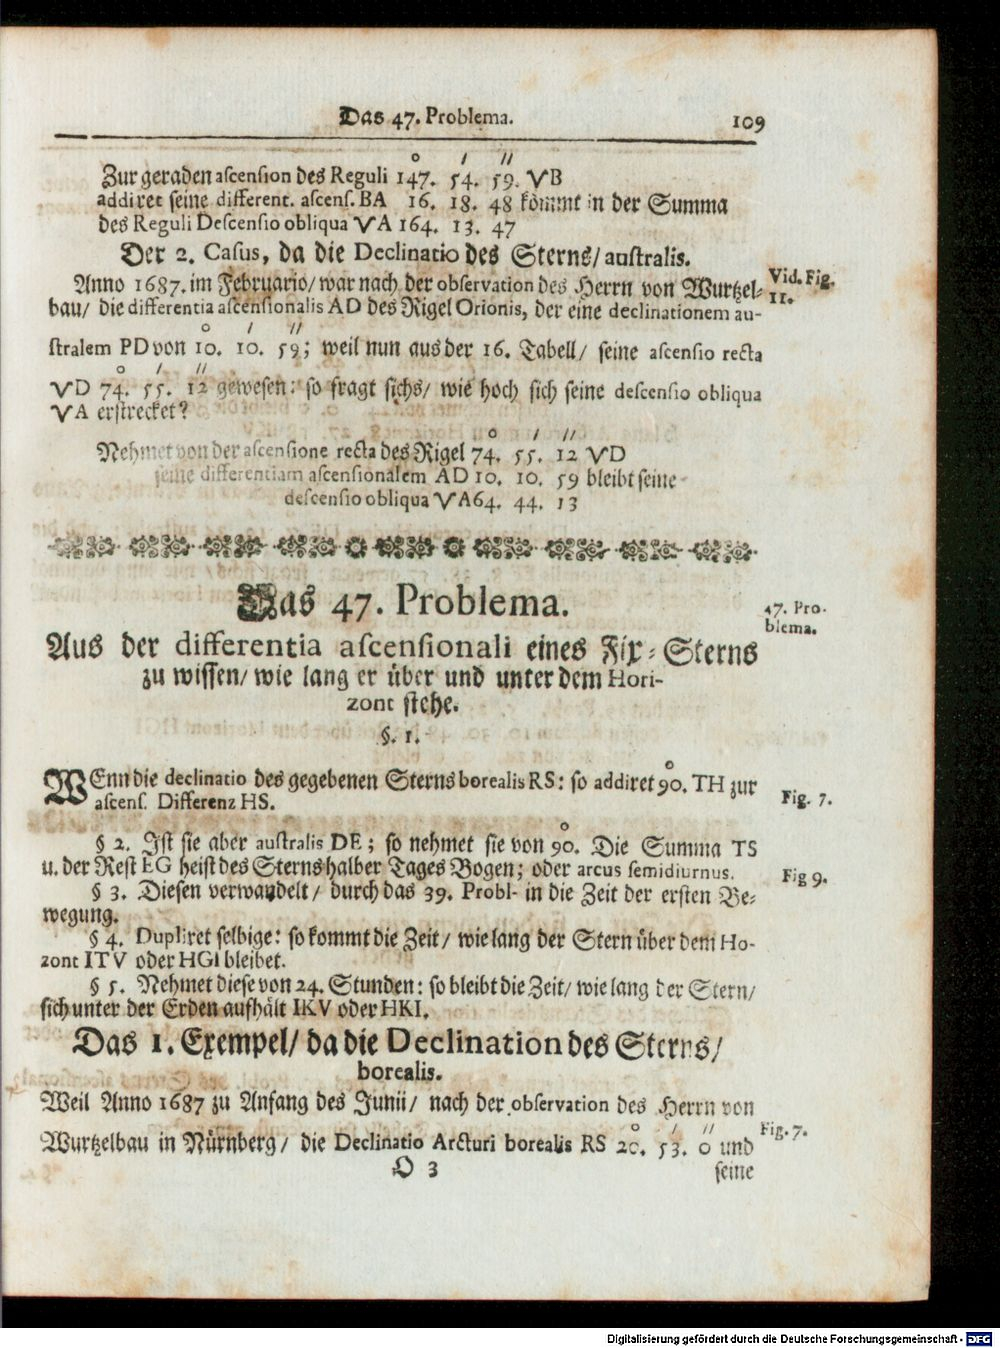 Das 47. Problema. 109
o / //
Zur geraden ascension des Reguli 147. 54. 59. VB
addiret seine different. ascens. BA 16. 18. 48 kommt in der Summa
des Reguli Descensio obliqua VA 164. 13. 47
Der 2. Casus, da die Declinatio des Sterns/ australis.
Anno 1687. im Februario/ war nach der observation des Herrn von Wurtzel-
Vid. Fig.
11.
bau/ die differentia ascensionalis AD des Rigel Orionis, der eine declinationem au-
o / //
stralem PD von 10. 10. 59; weil nun aus der 16. Tabell/ seine ascensio recta
o / //
VD 74. 55. 12 gewesen: so fragt sichs/ wie hoch sich seine descensio obliqua
VA erstrecket?
o / //
Nehmet von der ascensione recta des Rigel 74. 55. 12 VD
seine differentiam ascensionalem AD 10. 10. 59 bleibt seine
descensio obliqua VA 64. 44. 13
Das 47. Problema.
47. Pro-
blema.
Aus der differentia ascensionali eines Fix-Sterns
zu wissen/ wie lang er über und unter dem Hori-
zont stehe.
§. 1.
o
WEnn die declinatio des gegebenen Sterns borealis RS: so addiret 90. TH zur
ascens. Differenz HS.
Fig. 7.
o
§ 2. Ist sie aber australis DE; so nehmet sie von 90. Die Summa TS
u. der Rest EG heist des Sterns halber Tages Bogen; oder arcus semidiurnus.
Fig 9.
§ 3. Diesen verwandelt/ durch das 39. Probl- in die Zeit der ersten Be-
wegung.
§ 4. Dupliret selbige: so kommt die Zeit/ wie lang der Stern über dem Ho-
zont ITV oder HGI bleibet.
§ 5. Nehmet diese von 24. Stunden: so bleibt die Zeit/ wie lang der Stern/
sich unter der Erden aufhält IKV oder HKI.
Das 1. Exempel/ da die Declination des Sterns/
borealis.
Weil Anno 1687 zu Anfang des Junii/ nach der observation des Herrn von
o / //
Fig. 7.
Wurtzelbau in Nürnberg/ die Declinatio Arcturi borealis RS 20. 53. 0 und
O 3 seine
Digitalisierung gefördert durch die Deutsche Forschungsgemeinschaft - DFG